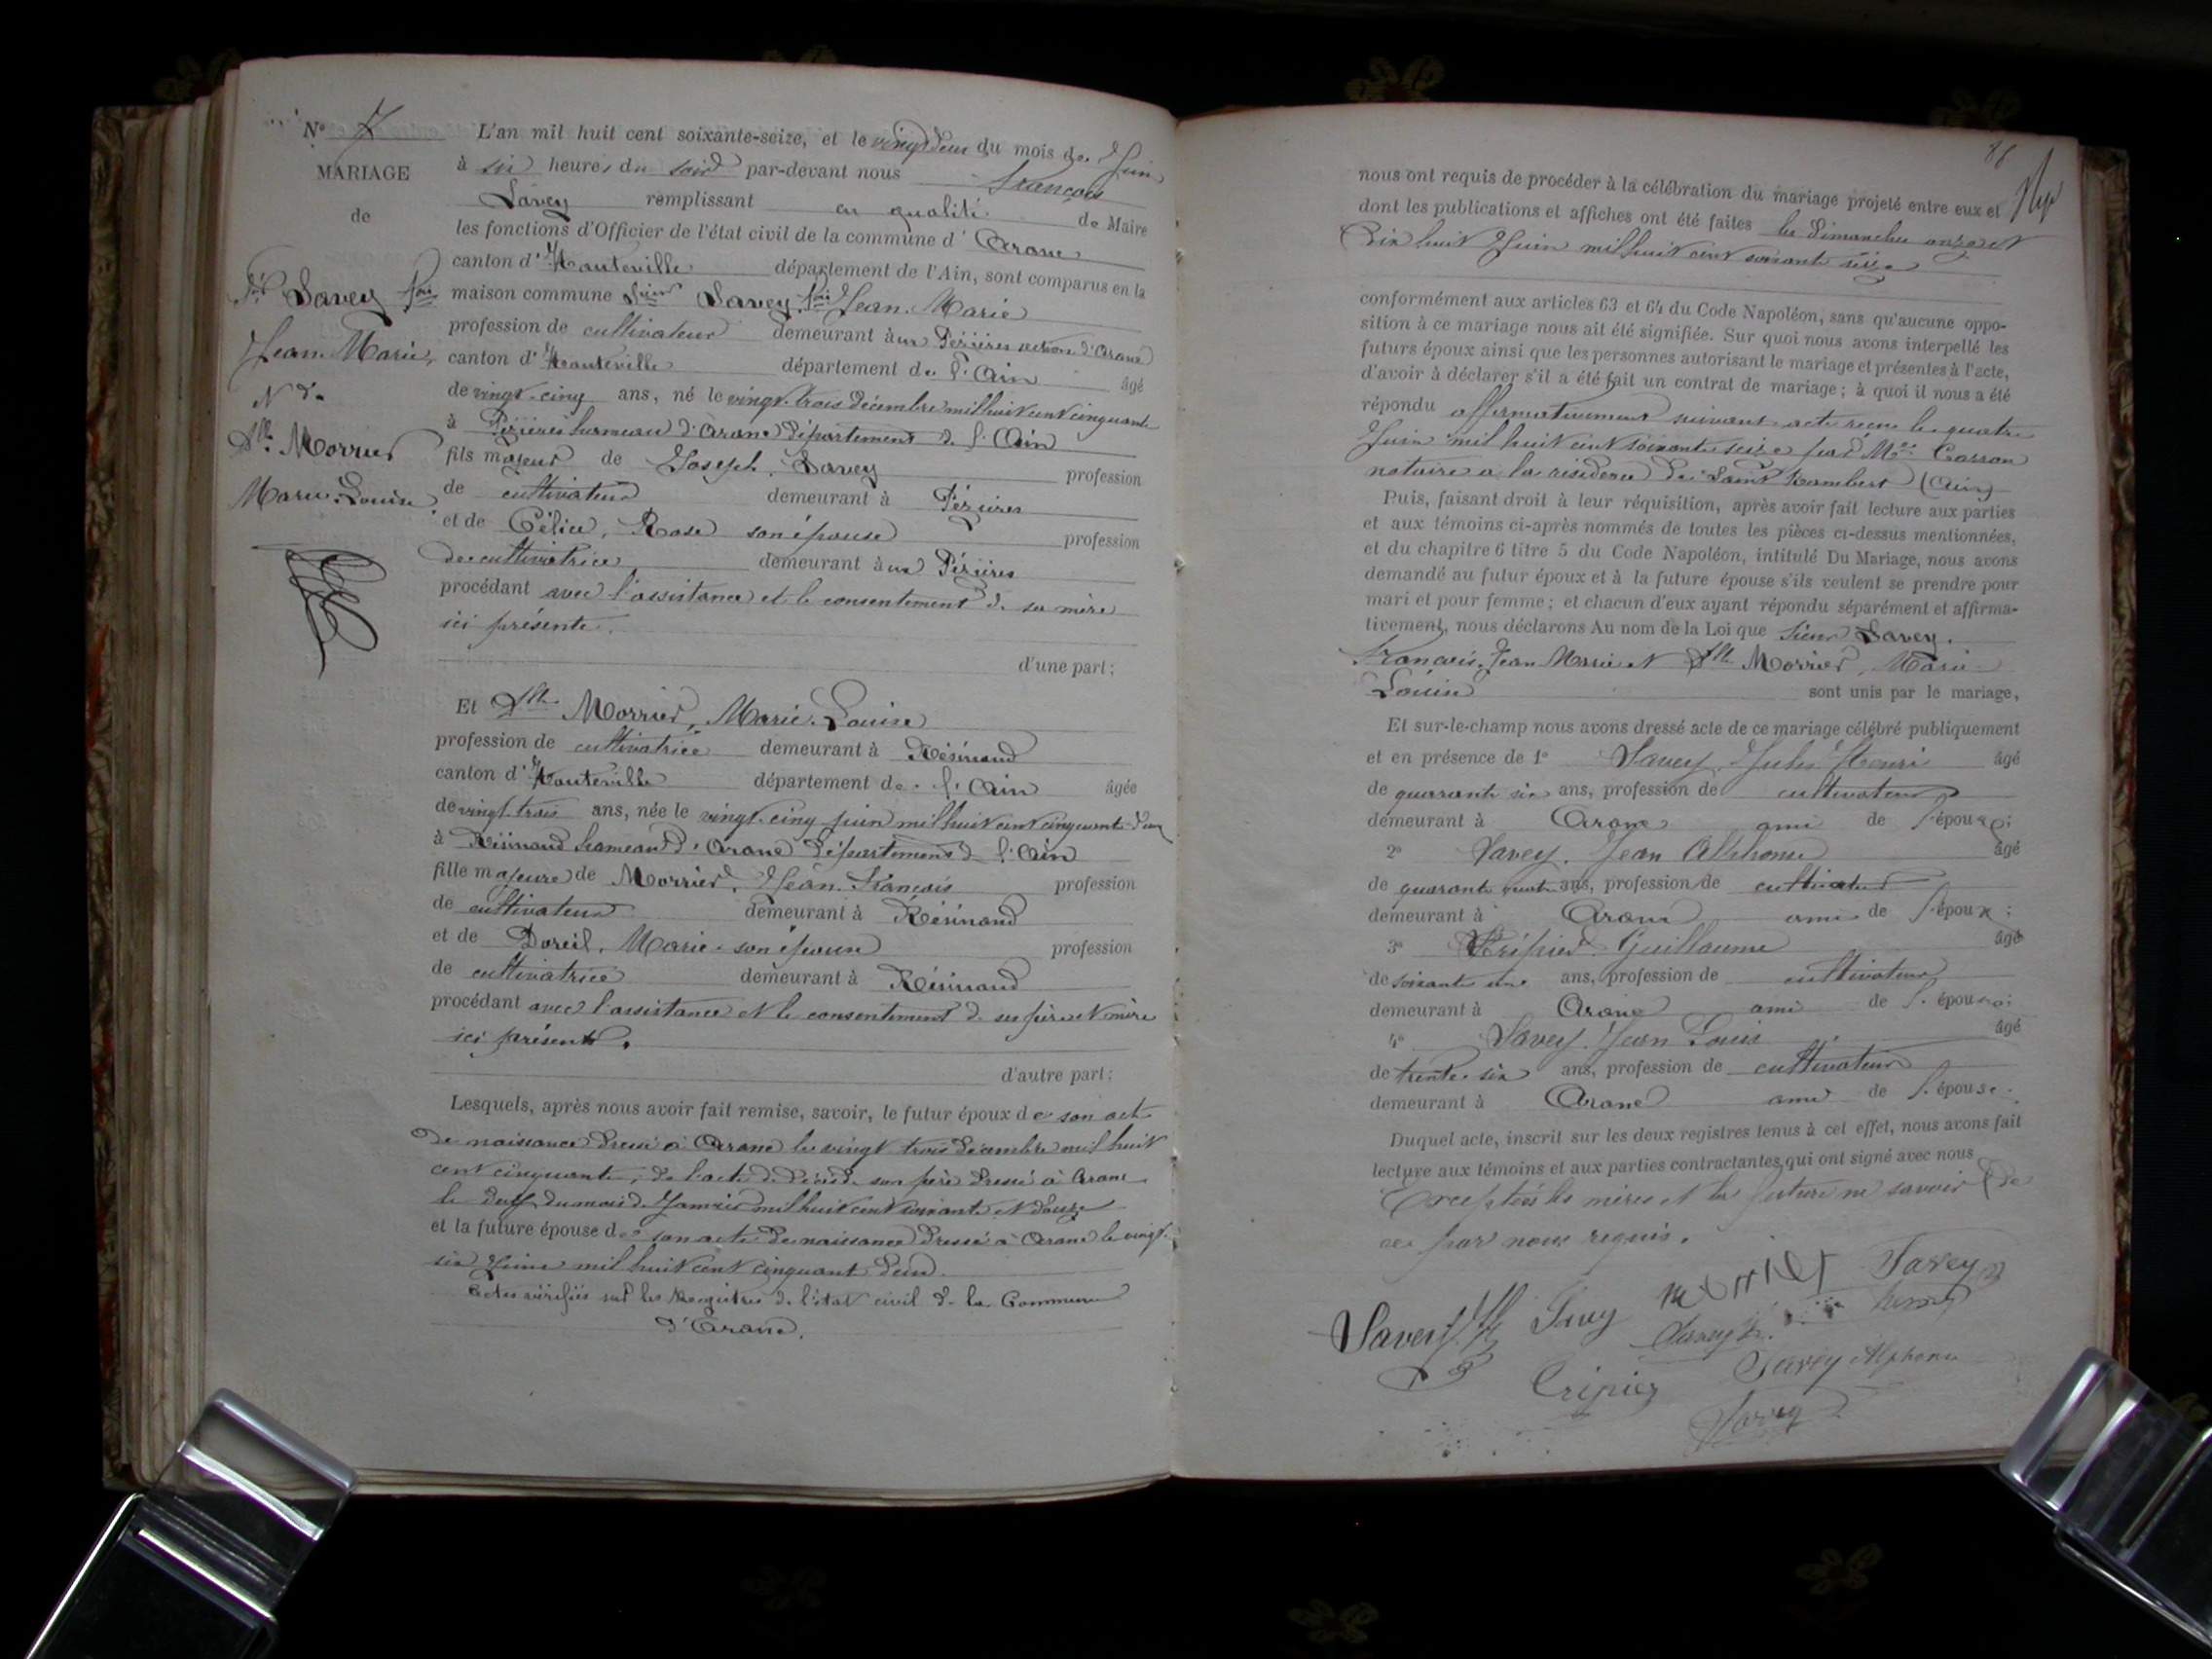 N° 7
MARIAGE
de
Sr Savey fois
Jean Marie
Et de
Dlle Morrier
Marie Louise
L'an mil huit cent soixante-seize, et le vingt deux du mois de Juin
à six heures du soir par-devant nous François
Savey remplissant en qualité de Maire
les fonctions d'Officier de l'état civil de la commune d'Arane
canton d'Hauteville département de l'Ain, sont comparus en la
maison commune Sieur Savey fois Jean Marie
profession de cultivateur demeurant à
canton d'Hauteville département de l'Ain âgé
de vingt-cinq ans, né le vingt-trois décembre mil huit cent cinquante
à Pézières hameau d'Arane département de l'Ain
fils majeur de Joseph Savey profession
de cultivateur demeurant à Pézières
et de Rose son épouse profession
de cultivatrice demeurant à Pézières
procédant avec l'assistance et le consentement de sa mère
ici présente.
d'une part;
Et Dlle Morrier, Marie Louise
profession de cultivatrice demeurant à Résinand
canton d'Hauteville département de l'Ain âgée
de vingt trois ans, née le vingt-cinq juin mil huit cent cinquante deux
à Résinand hameau d'Arane département de l'Ain
fille majeure de Morrier, Jean François profession
de cultivateur demeurant à Résinand
et de Doreil, Marie son épouse profession
de cultivatrice demeurant à Résinand
procédant avec l'assistance et le consentement de ses père et mère
ici présents.
d'autre part;
Lesquels, après nous avoir fait remise, savoir, le futur époux de son acte
de naissance dressé à Arane le vingt trois décembre mil huit
cent cinquante, de l'acte de décès de son père dressé à Arane
le du mois de Janvier mil huit cent soixante et douze
et la future épouse de son acte de naissance dressé à Arane le vingt
six Juin mil huit cent cinquant deux.
actes vérifiés sur les Registres de l'état civil de la Commune
d'Arane.
nous ont requis de procéder à la célébration du mariage projeté entre eux et
dont les publications et affiches ont été faites les Dimanches onze et
Dix huit Juin mil huit cent soixante seize
conformément aux articles 63 et 64 du Code Napoléon, sans qu'aucune oppo-
sition à ce mariage nous ait été signifiée. Sur quoi nous avons interpellé les
futurs époux ainsi que les personnes autorisant le mariage et présentes à l'acte,
d'avoir à déclarer s'il a été fait un contrat de mariage; à quoi il nous a été
répondu affirmativement suivant acte reçu le quatre
Juin mil huit cent soixante seize par Me Carron
notaire à la résidence de Saint Rambert (Ain)
Puis, faisant droit à leur réquisition, après avoir fait lecture aux parties
et aux témoins ci-après nommés de toutes les pièces ci-dessus mentionnées,
et du chapitre 6 titre 5 du Code Napoléon, intitulé Du Mariage, nous avons
demandé au futur époux et à la future épouse s'ils veulent se prendre pour
mari et pour femme; et chacun d'eux ayant répondu séparément et affirma-
tivement, nous déclarons Au nom de la Loi que Sieur Savey.
François Jean Marie et Dlle Morrier, Marie
Louise sont unis par le mariage,
Et sur-le-champ nous avons dressé acte de ce mariage célébré publiquement
et en présence de 1° Savey Jules Henri âgé
de quarante six ans, profession de cultivateur
demeurant à Arane ami de l'époux;
2° Savey. Jean Alphonse âgé
de quarante ans, profession de cultivateur
demeurant à Arane ami de l'époux;
3° Guillaume âgé
de soixante une ans, profession de cultivateur
demeurant à Arane ami de l'épouse;
4° Savey Jean Louis âgé
de trente-six ans, profession de cultivateur
demeurant à Arane ami de l'épouse.
Duquel acte, inscrit sur les deux registres tenus à cet effet, nous avons fait
lecture aux témoins et aux parties contractantes qui ont signé avec nous
Exceptées les mères et la future ne savoir de
ce par nous requis.
Morrier Savey
Savey
Crépiez Savey Alphonse
Savey